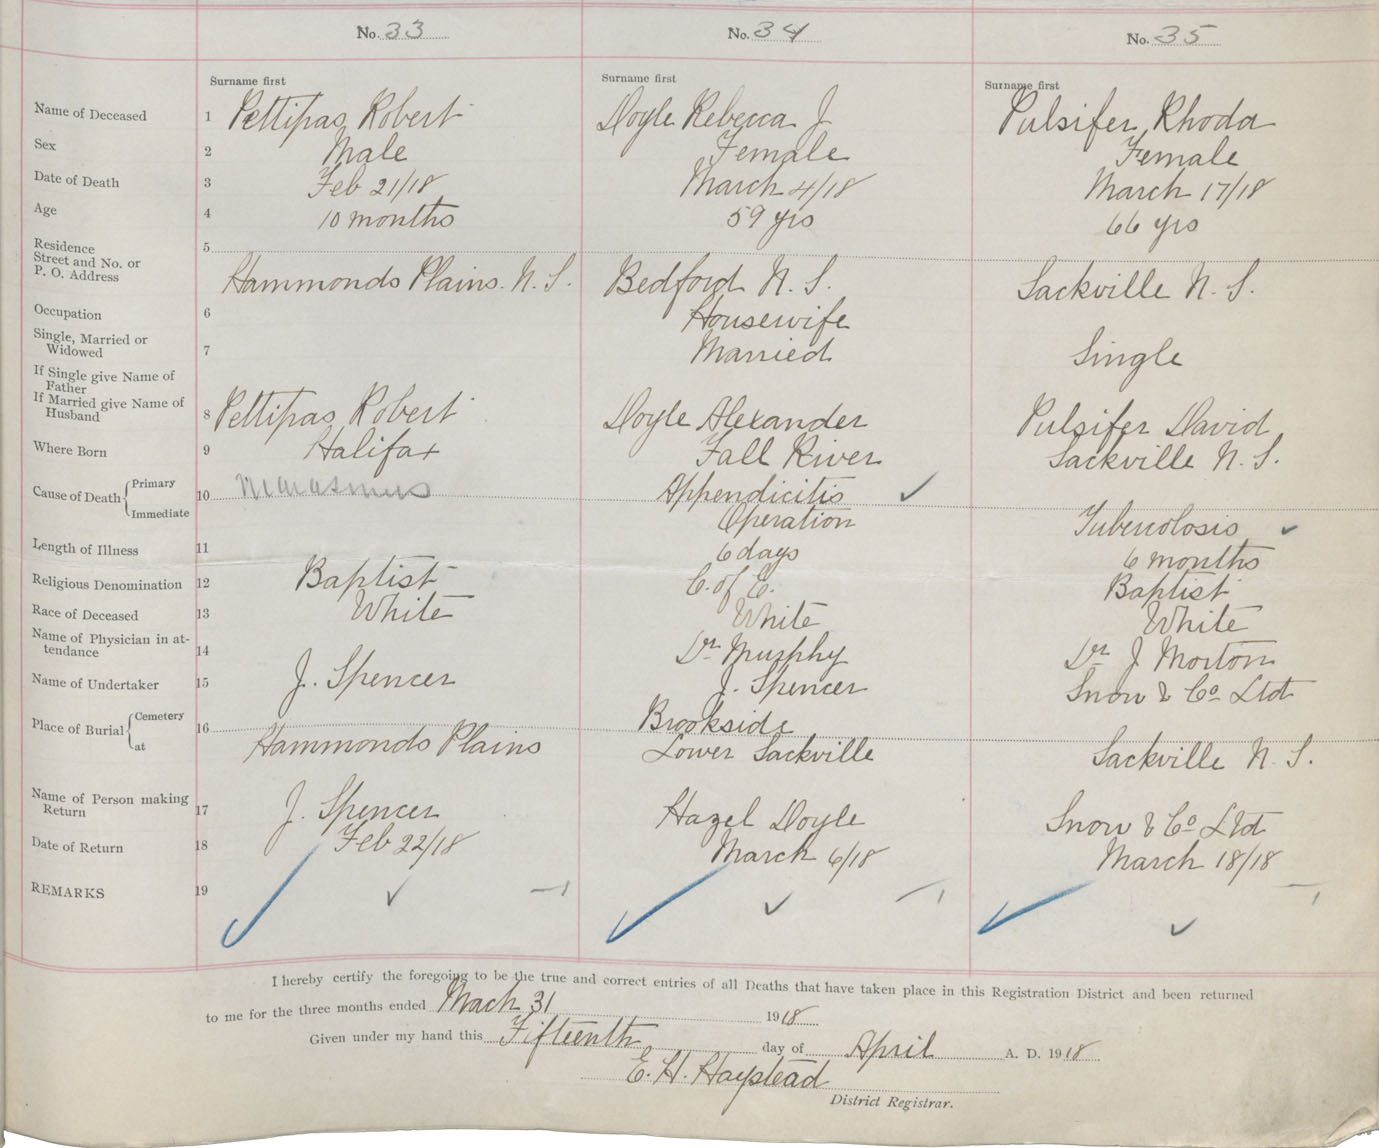 No. 33 No. 34 No. 35
Surname first Surname first Surname first
Name of Deceased 1 Pettipas, Robert Doyle Rebecca J Pulsifer, Rhoda
Sex 2 Male Female Female
Date of Death 3 Feb 21/18 March 4/18 March 17/18
Age 4 10 months 59 yrs 66 yrs
Residence
Street and No. or 5
P. O. Address Hammonds Plains. N. S. Bedford N. S. Sackville N. S.
Occupation 6 Housewife
Single, Married or
Widowed 7 Married Single
If Single give Name of
Father
If Married give Name of
Husband 8 Pettipas, Robert Doyle Alexander Pulsifer David
Where Born 9 Halifax Fall River Sackville N. S.
Cause of Death { Primary 10 Marasmus Appendicitis ✓
Immediate Operation Tubercolosis ✓
Length of Illness 11 6 days 6 months
Religious Denomination 12 Baptist C. of E. Baptist
Race of Deceased 13 White White White
Name of Physician in at-
tendance 14 Dr Murphy Dr J Morton
Name of Undertaker 15 J. Spencer J. Spencer Snow & Co Ltd
Place of Burial { Cemetery 16 Brookside
at Hammonds Plains Lower Sackville Sackville N. S.
Name of Person making
Return 17 J. Spencer Hazel Doyle Snow & Co Ltd
Date of Return 18 Feb 22/18 March 6/18 March 18/18
REMARKS 19 ✓ ✓ —1 ✓ ✓ —1 ✓ ✓ —1
I hereby certify the foregoing to be the true and correct entries of all Deaths that have taken place in this Registration District and been returned
to me for the three months ended Mach 31 1918
Given under my hand this Fifteenth day of April A. D. 1918
E. H. Haystead
District Registrar.